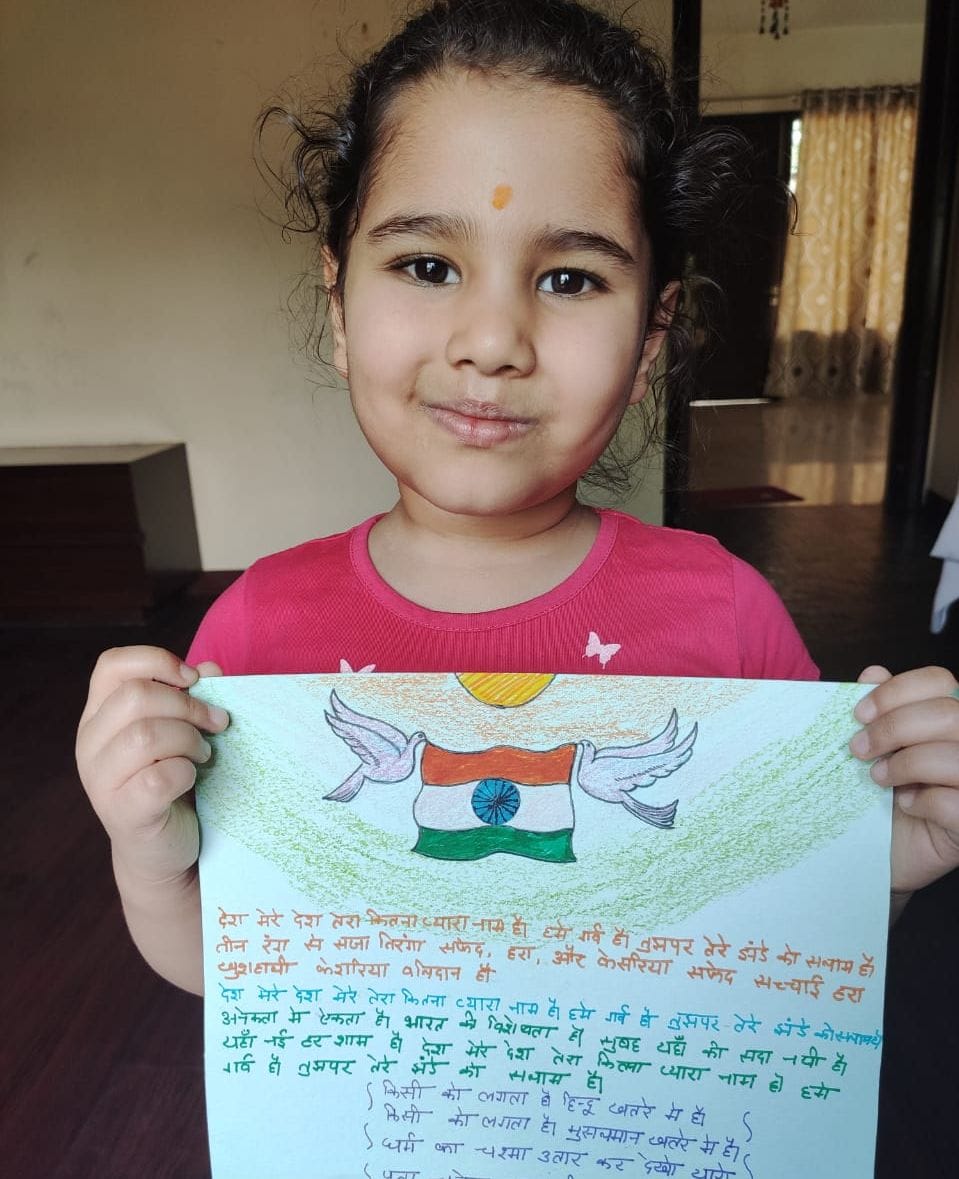 देश मेरे देश तेरा कितना प्यारा नाम है। हमे गर्व है। तुमपर तेरे झंडे को सलाम है।
तीन रंग से सजा तिरंगा सफेद, हरा, और केसरिया सफेद सच्चाई हरा
खुशहाली केशरिया बलिदान है
देश मेरे देश मेरे तेरा कितना प्यारा नाम है हमे गर्व है तुमपर तेरे झंडे को सलाम है
अनेकता मे ऐकता है। भारत की विशेषता है। सुबह यहाँ की सदा नयी है।
यहाँ नई हर शाम है। देश मेरे देश तेरा कितना प्यारा नाम है हमे
गर्व है। तुमपर तेरे झंडे को सलाम है।
किसी को लगता है हिन्दू खतरे मे है।
किसी को लगता है। मुसलमान खतरे मे है।
धर्म का चश्मा उतार कर देखो यारो